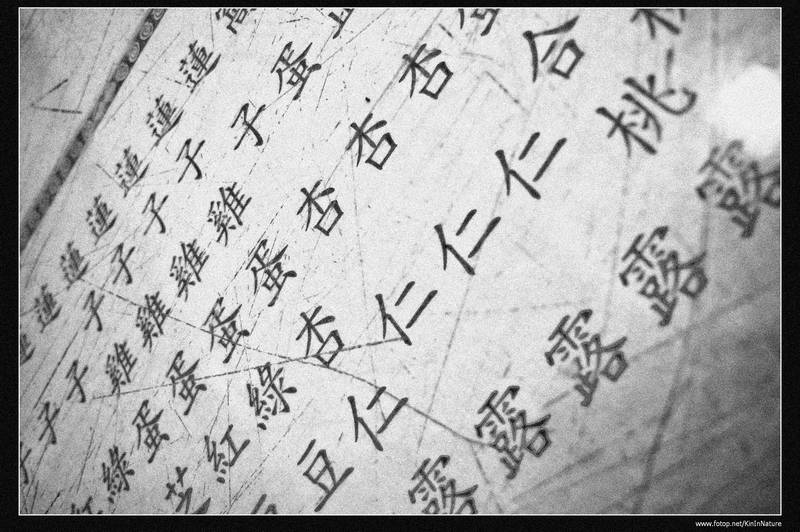 合桃露
杏仁露
蛋杏仁露
蓮子杏仁露
蓮子雞蛋杏仁露
蓮子雞蛋綠豆
蓮子雞蛋紅
蓮子雞蛋芝
蓮子綠
蓮子紅
子
www.fotop.net/KinInNature